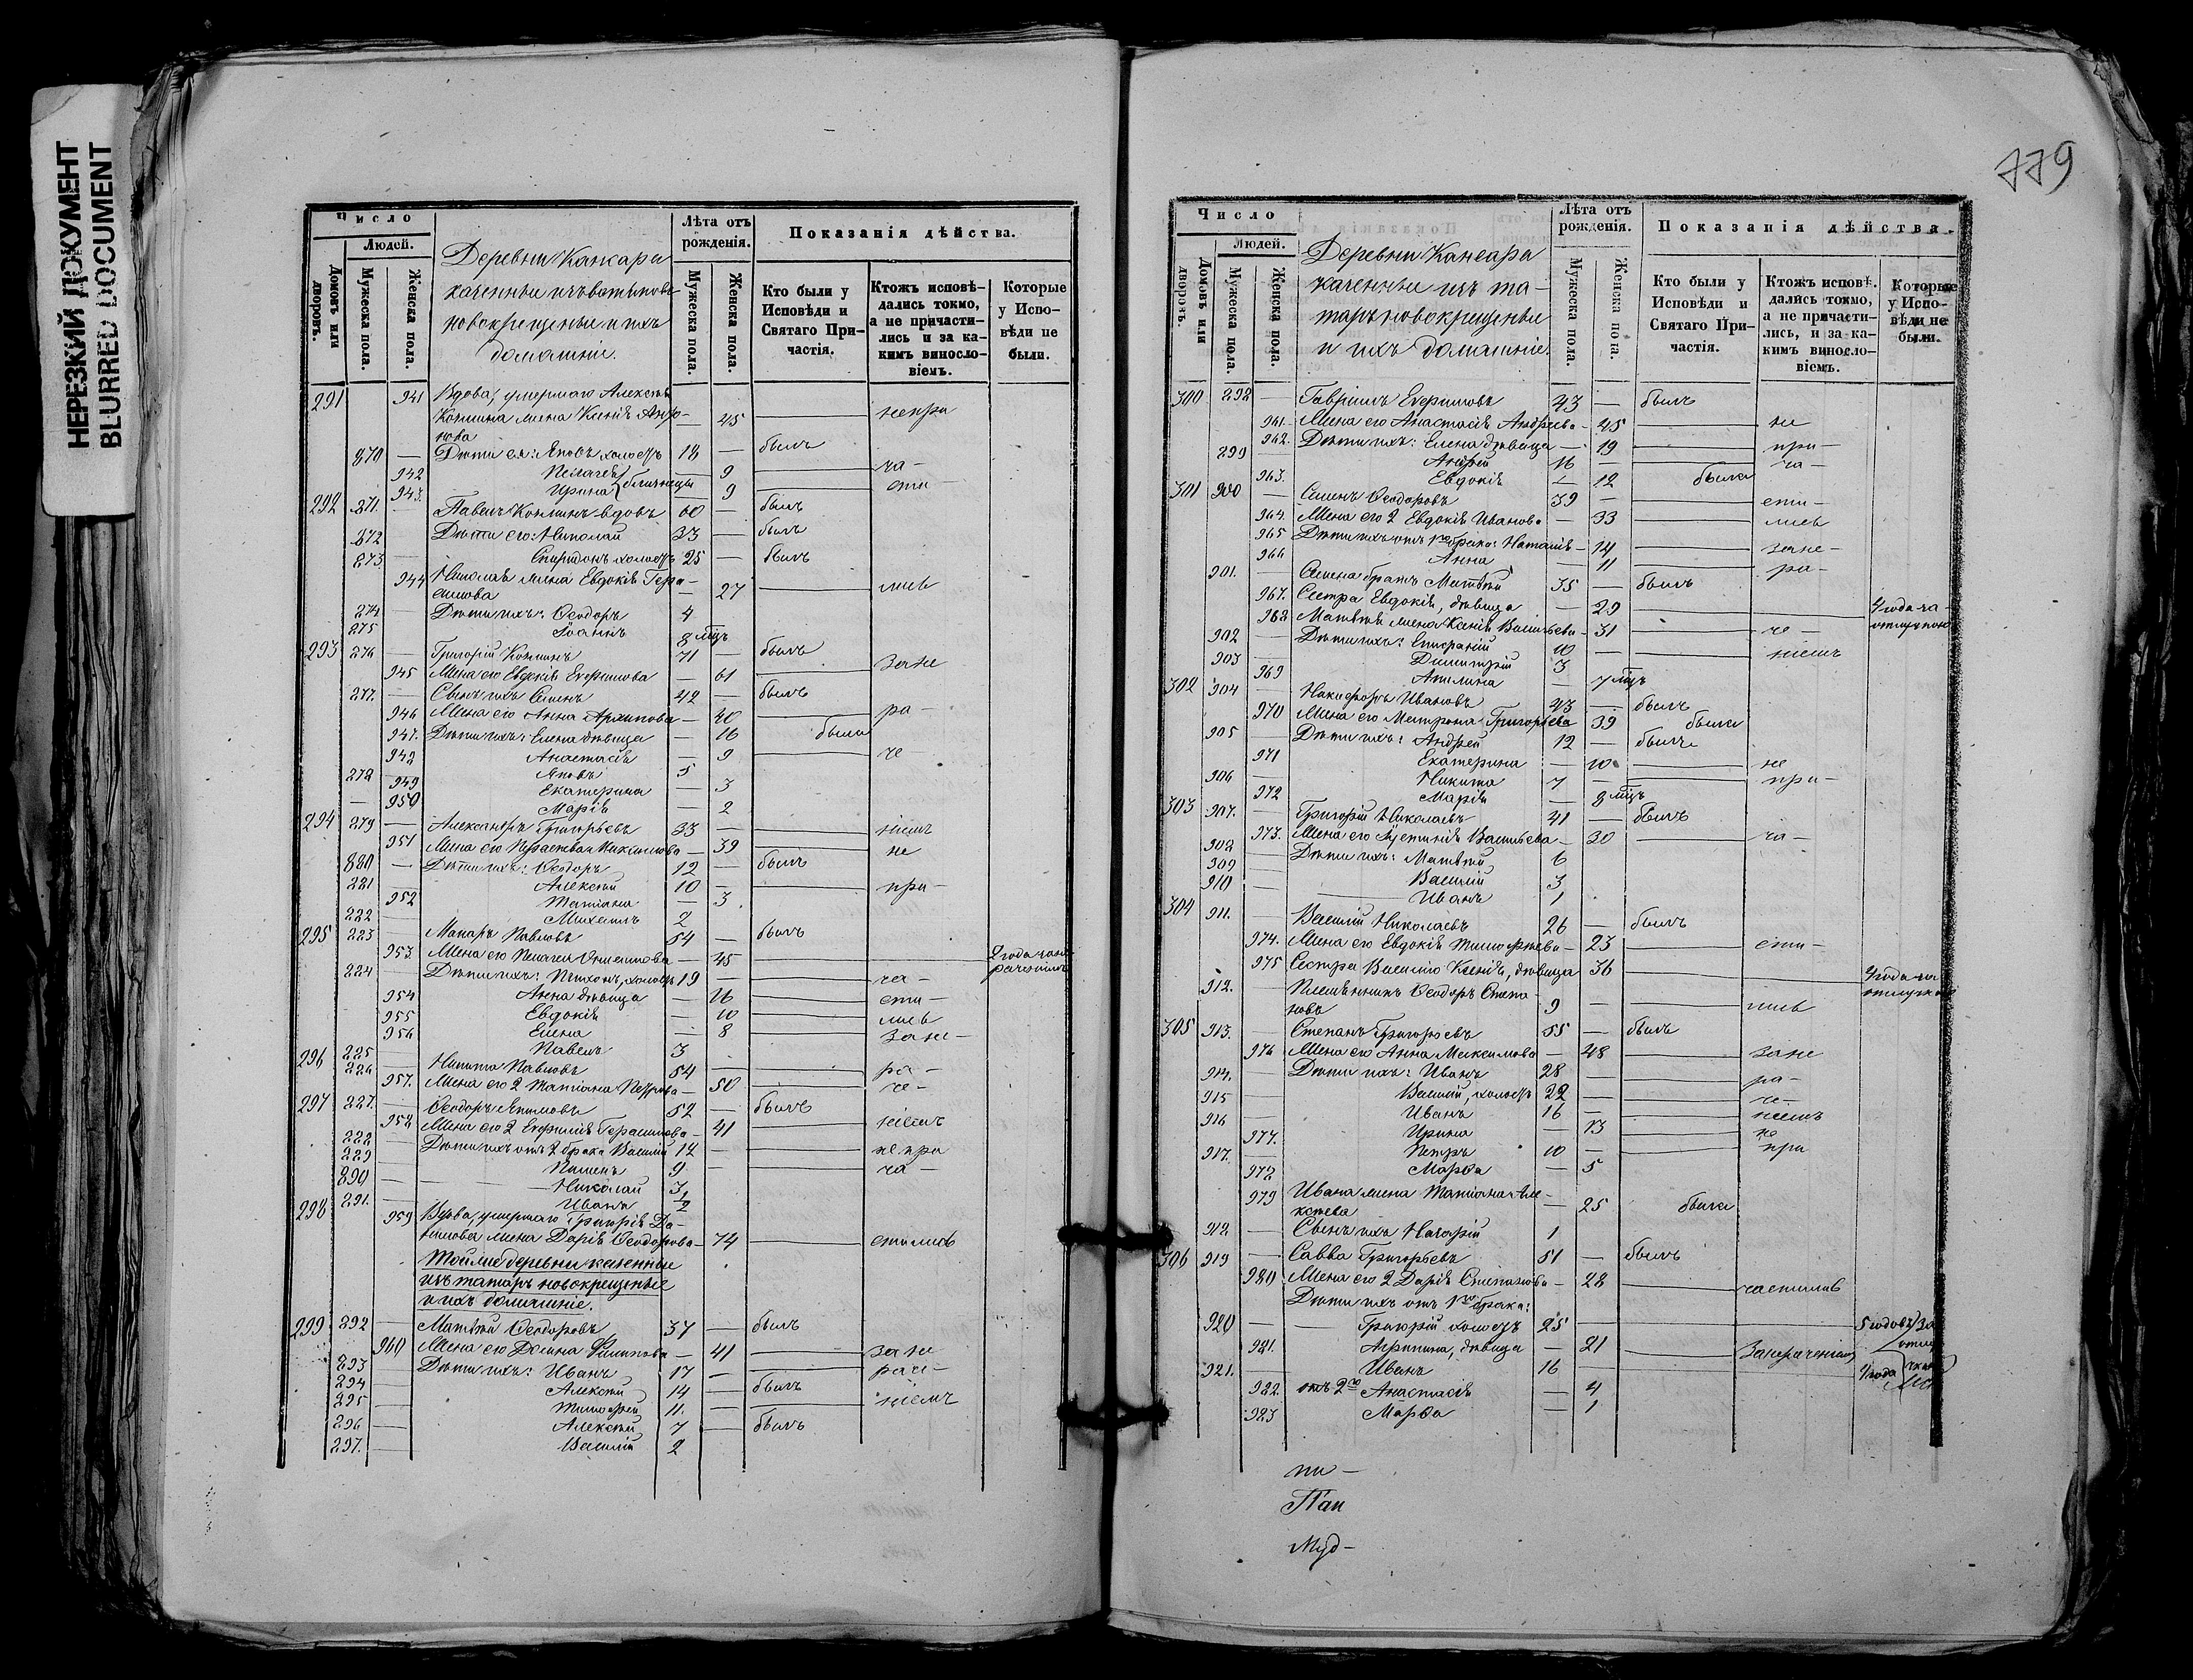 НЕРЕЗКИЙ ДОКУМЕНТ
BLURRED DOCUMENT
Число
Людей.
Домовъ или дворовъ.
Мужеска пола.
Женска пола.
Деревни Кансары
новокрещеные и ихъ
домашніе.
Лѣта отъ рожденія.
Мужеска пола.
Женска пола.
Показанія дѣйства.
Кто были у Исповѣди и Святаго Причастія.
Ктожъ исповѣдались токмо, а не причастились и за какимъ винословіемъ.
Которые у Исповѣди не были.
291 941 Вдова, умершаго Алексѣя
жена Ксенія 45 непри
870 — Дѣти ея: Яковъ холостъ 18 — былъ
942 Пелагея — 9 ча-
943 Ирина близнецы — 9 сти-
292 871. — Павелъ вдовъ 60 — былъ
872 Дѣти его: Николай 33 — былъ
873 Спиридонъ холостъ 25 — былъ
944 Николая жена Евдокія Гера-
симова — 27 лись
874 — Дѣти ихъ: Ѳеодоръ 4
875 Іоаннъ 8 мѣц
293 876 — Григорій 71 — былъ
945 Жена его Евдокія Ефимова — 61 зане
877. — Сынъ ихъ Семенъ 42 — былъ
946 Жена его Анна Архипова — 40 ра-
947. Дѣти ихъ: Елена дѣвица — 16 была
948 Анастасія — 9 че
878 Яковъ 5
949 Екатерина — 3
950 Марія — 2
294 879 — Александръ Григорьевъ 33 — ніемъ
951 Жена его Параскева — 39 не
880 — Дѣти ихъ: Ѳеодоръ 12 — былъ
881 Алексѣй 10 — при-
952 Татіана — 3
882 Михаилъ 2
295 883 — Макаръ Павловъ 54 — былъ
953. Жена его Пелагея Онисимова — 45
884 — Дѣти ихъ: холостъ 19 ча-
954 Анна дѣвица — 16 сти-
955 Евдокія — 10 лись
956 Елена — 8 зане-
885 — Павелъ 3
296 886 — Никита Павловъ 54 ра-
957. Жена его 2 Татіана Петрова — 50 че-
297 887. — Ѳеодоръ Якимовъ 52 — былъ
958 Жена его 2 Евфимія Герасимова — 41 ніемъ
888 — Дѣти ихъ отъ 2 брака Василій 12 — непри
889 Пименъ 9 — ча-
890 Николай 3
891. Иванъ 1/2
298 959 Вдова, умершаго Григорія Да-
нилова жена Дарія Ѳеодорова — 74 стились
Той же деревни казенные
изъ татаръ новокрещеные
и ихъ домашніе.
299 892 — Матвѣй Ѳеодоровъ 37 — былъ
960 Жена его Домна Филипова — 41 зане
893 — Дѣти ихъ: Иванъ 17 — раче-
894 Алексѣй 14 — былъ
895 Тимофей 11. — ніемъ
896 Алексѣй 7 — былъ
897. — Василій 2
779
Число
Людей.
Домовъ или дворовъ.
Мужеска пола.
Женска пола.
Деревни Кансары
казенные изъ та-
таръ новокрещеные
и ихъ домашніе.
Лѣта отъ рожденія.
Мужеска пола.
Женска пола.
Показанія дѣйства.
Кто были у Исповѣди и Святаго Причастія.
Ктожъ исповѣ. дались токмо, а не причастились, и за какимъ винословіемъ.
Которые у Исповѣди не были.
300 898 — Гавріилъ Ефимовъ 43 — былъ
961. Жена его Анастасія Андреева — 45 не
962. Дѣти ихъ: Елена дѣвица — 19 при-
899 Андрей 16 — ча-
963. Евдокія — 12 была
301 900 — Семенъ Ѳеодоровъ 39 — сти-
964. Жена его 2 Евдокія Иванова — 33 лись
965 Дѣти ихъ отъ 1го брака: Наталія — 14 зане-
966 Анна — 11 ра-
901. — Семена братъ Матвѣй 35 — былъ
967. Сестра Евдокія, дѣвица — 29 4 года за
отлучкою
968 Матвѣя жена Ксенія Васильева — 31 че-
902 — Дѣти ихъ: 10 — ніемъ
903 — Димитрій 3
969 Акилина — 7 мѣц
302 904 — Никифоръ Ивановъ 43 — былъ
970 Жена его Матрона Григорьева 39 была
905 — Дѣти ихъ: Андрей 12 — былъ
971 Екатерина — 10 не
906 — Никита 7 — при-
972 Марія — 8 мѣц
303 907. — Григорій Николаевъ 41 — былъ
973. Жена его Іустинія Васильева — 30 ча-
908 — Дѣти ихъ: Матвѣй 6
909 — Василій 3
910 — Иванъ 1
304 911. Василій Николаевъ 26 — былъ
974. Жена его Евдокія Тимофеева — 23 сти-
975 Сестра Василію Ксенія, дѣвица 36 4 года за
отлучкою
912. — Племянникъ Ѳеодоръ Степа-
новъ 9 — лись
305 913. — Степанъ Григорьевъ 55 — былъ
976 Жена его Анна Максимова — 48 зане
914. — Дѣти ихъ: Иванъ 28 ра-
915 Василій, холостъ 22 — че-
916 Иванъ 16 — ніемъ
977. Ирина — 13 не
917. — Петръ 10 — при
978 Марѳа — 5
979 Ивана жена Татіана Але-
ксѣева — 25 была
918 — Сынъ ихъ 1
306 919 — Савва Григорьевъ 51 — былъ
980 Жена его 2 Дарія Степанова — 28 частились
Дѣти ихъ отъ 1го брака:
920 — Григорій холостъ 25 5 годовъ за
981. Агрипина, дѣвица — 21 занераченіемъ
921. Иванъ 16 4 года
982. отъ 2го Анастасія — 4
983 Марѳа — 1
ти-
Пан
Муд-